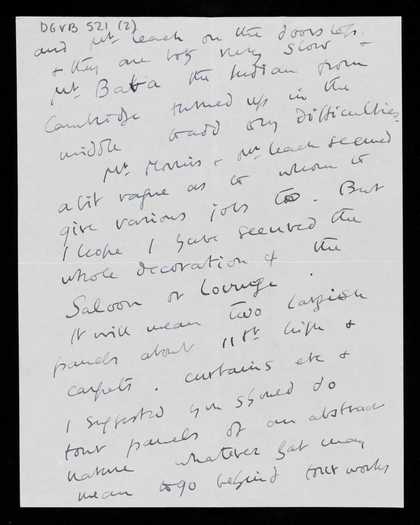 DGVB 521 (2)
and Mr Leach on the doorstep.
& they are both very slow &
Mr Batra the Indian from
Cambridge turned up in the
middle to add my difficulties.
Mr Morris & Mr Leach seemed
a bit vague as to whom to
give various jobs to. But
I hope I have secured the
whole decoration of the
Saloon or Lounge.
It will mean two largish
panels about 11 ft high &
carpets. curtains etc &
I suggested you should do
tour panels of an abstract
nature whatever that may
mean to go behind tour works